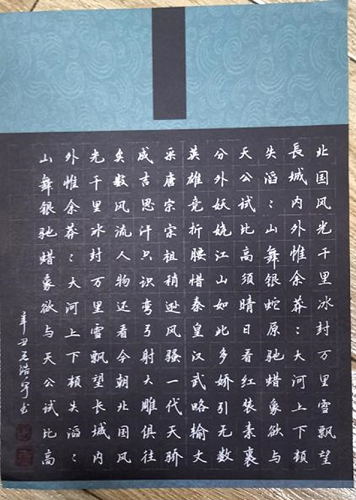 北国风光千里冰封万里雪飘望
長城内外惟余莽：大河上下顿
失滔：山舞银蛇原驰蜡象欲与
天公试比高须晴日看红装素裹
分外妖娆江山如此多娇引无数
英雄竞折腰惜秦皇汉武略输文
采唐宗宋祖稍逊风骚一代天骄
成吉思汗只识弯弓射大雕俱往
矣数风流人物还看今朝北国风
光千里冰封万里雪飘望长城内
外惟余莽：大河上下顿失滔：
山舞银驰蜡象欲与天公试比高
辛丑王浩宇书